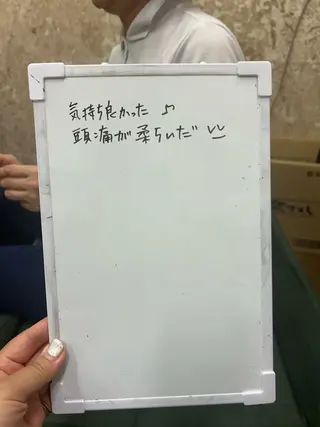 気持ち良かった♪
頭痛が柔らいだ